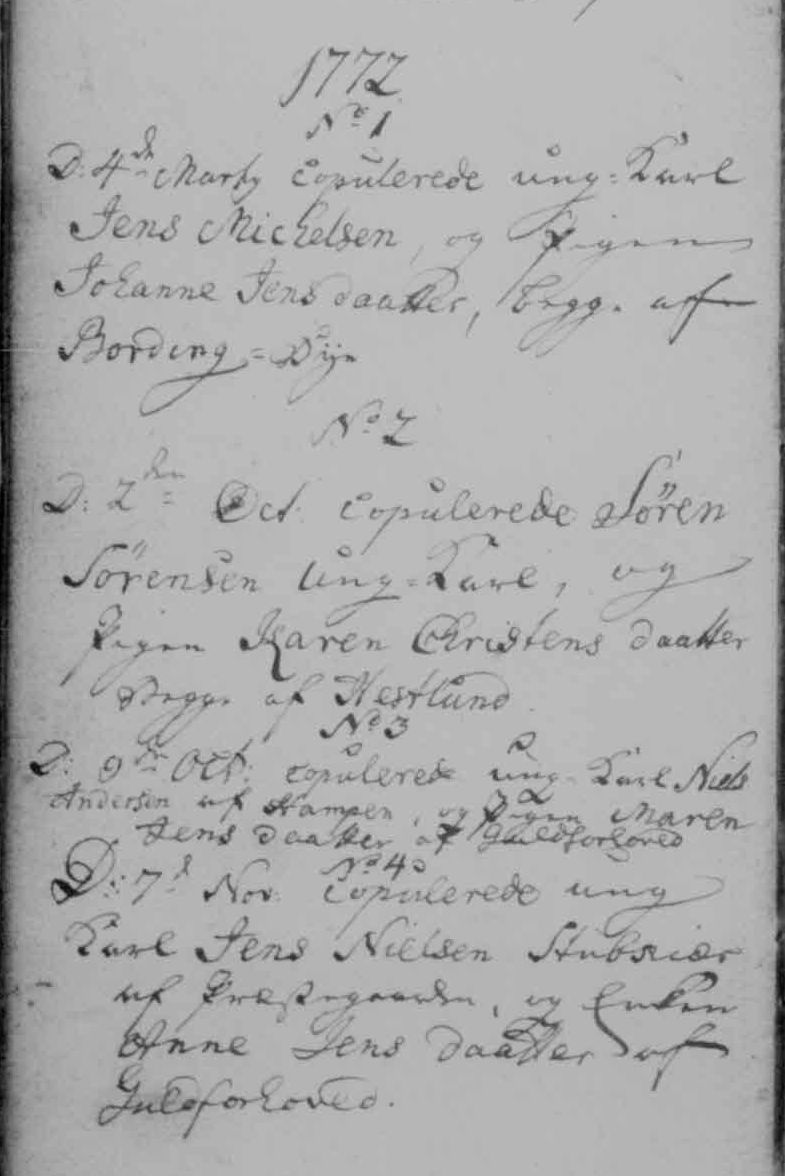 1772
No 1
D: 4de Martij Copulerede ung=Karl
Jens Michelsen, og Pigen
Johanne Jens daatter, begge af
Bording=Bye
No 2
D: 2den Oct. Copulerede Sören
Sörensen Ung=Karl, og
Pigen Karen Christens daatter
Begge af Nestlund
No 3
D: 9de Oct: copulerede ung Karl Niels
Andersen af Hampen, og Pigen Maren
Jens daatter af Guldforhoved
No 4
D: 7d Nov: Copulerede ung
Karl Jens Nielsen Stubkiær
af Præstegaarden, og Enken
Anne Jens daatter af
Guldforhoved.